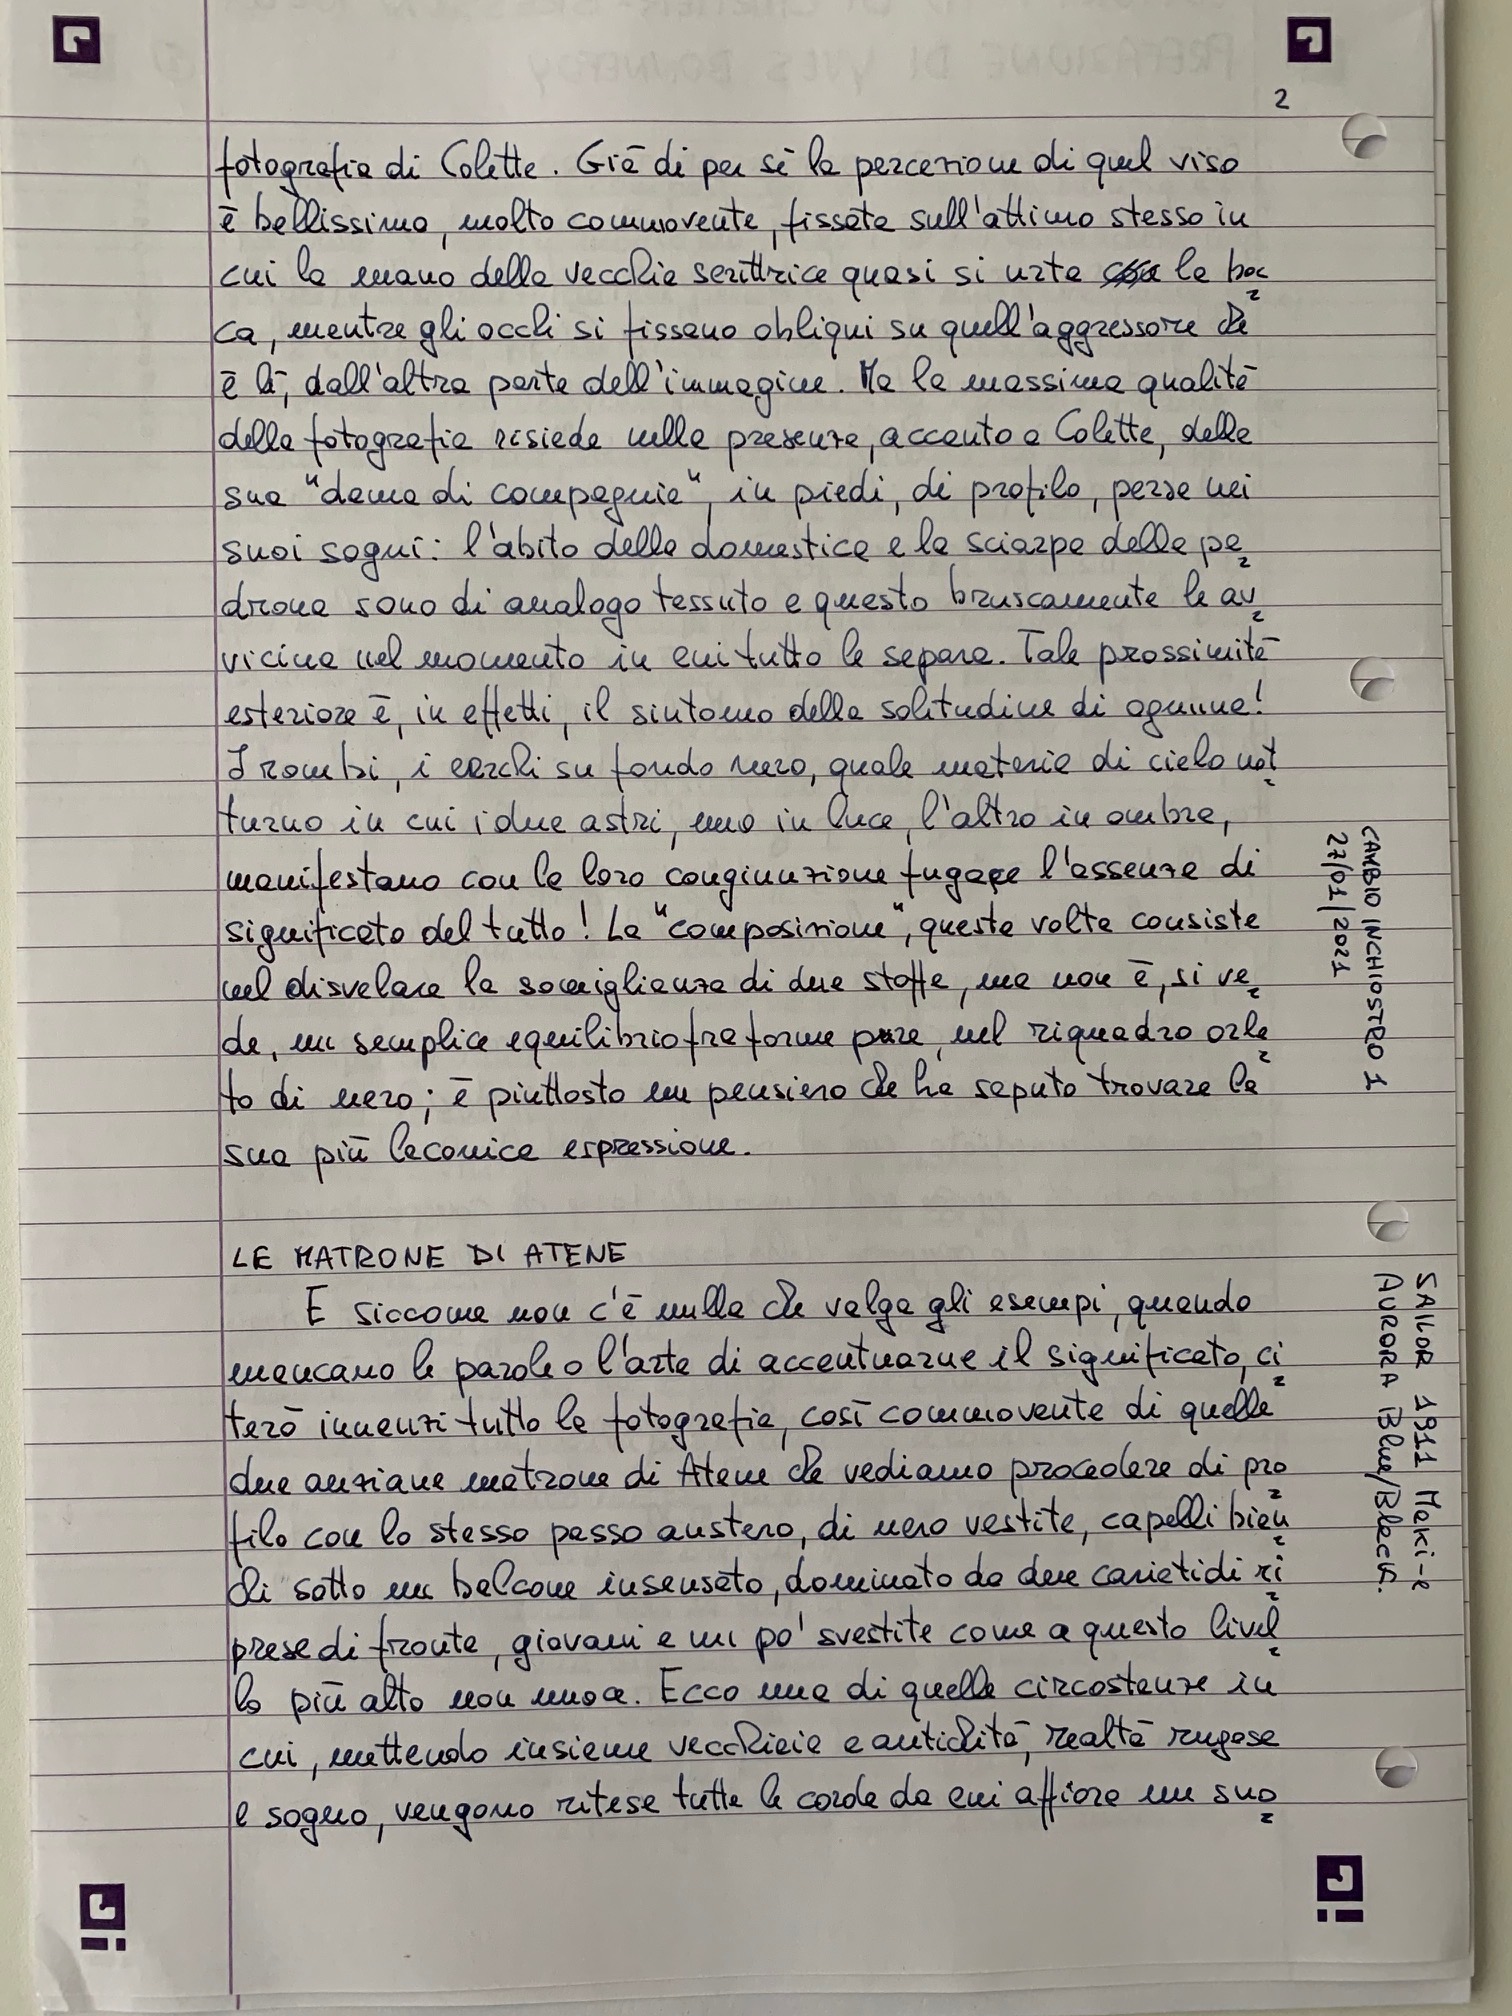 2
fotografia di Colette. Già di per sè la percezione di quel viso
è bellissimo, molto commovente, fissata sull'attimo stesso in
cui la mano della vecchia scrittrice quasi si urta la boc
ca, mentre gli occhi si fissano obliqui su quell'aggressore che
è là, dall'altra parte dell'immagine. Ma la massima qualità
della fotografia risiede nella presenza, accanto a Colette, della
sua "dama di compagnia", in piedi, di profilo, persa nei
suoi sogni: l'abito della domestica e la sciarpa della pa
drona sono di analogo tessuto e questo bruscamente le av
vicina nel momento in cui tutto le separa. Tale prossimità
esteriore è, in effetti, il sintomo della solitudine di ognuna!
I rombi, i cerchi su fondo nero, quale materia di cielo not
turno in cui i due astri, uno in luce, l'altro in ombra,
manifestano con la loro congiunzione fugace l'assenza di
significato del tutto! La "composizione", questa volta consiste
nel disvelare la somiglianza di due stoffe, ma non è, si ve
de, un semplice equilibrio fra forme pure, nel riquadro orla
to di nero; è piuttosto un pensiero che ha saputo trovare la
sua più laconica espressione.
LE MATRONE DI ATENE
E siccome non c'è nulla che valga gli esempi, quando
mancano le parole o l'arte di accentuarne il significato, ci
terò innanzi tutto la fotografia, così commovente di quelle
due anziane matrone di Atene che vediamo procedere di pro
filo con lo stesso passo austero, di nero vestite, capelli bian
chi sotto un balcone insensato, dominato da due cariatidi ri
prese di fronte, giovani e un po' svestite come a questo livel
lo più alto non nuoce. Ecco una di quelle circostanze in
cui, mettendo insieme vecchiaia e antichità, realtà rugosa
e sogno, vengono ritese tutte le corde da cui affiora un suo
CAMBIO INCHIOSTRO 1
27/01/2021
SAILOR 1911 Maki-e
AURORA Blue/Black.